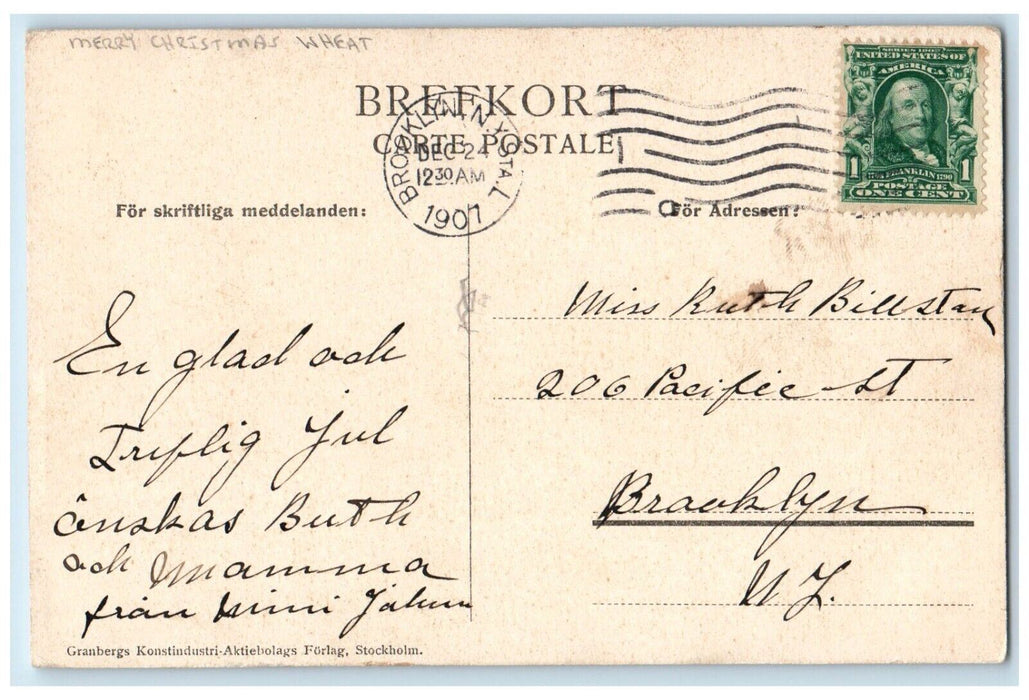 MERRY CHRISTMAS WHEAT
BREFKORT
CARTE POSTALE
BROOKLYN, N.Y. STA. L
DEC 24
12 30 AM
1907
SERIES 1902
UNITED STATES OF
AMERICA
1 1
1706 FRANKLIN 1790
POSTAGE
ONE CENT
För skriftliga meddelanden:
För Adressen:
En glad och
Treflig Jul
önskas Ruth
och Mamma
från Mimi
Miss Ruth Billstan
206 Pacific St
Brooklyn
N Y.
Granbergs Konstindustri-Aktiebolags Förlag, Stockholm.